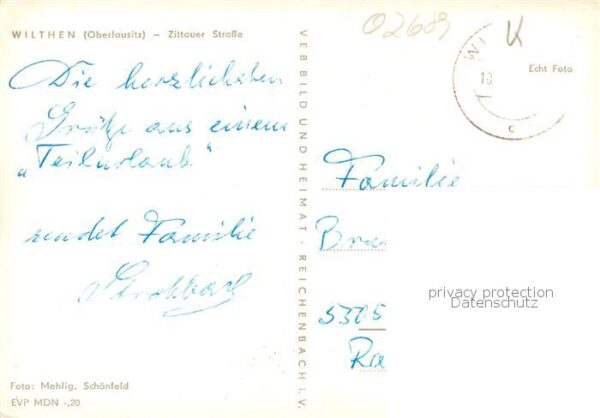 WILTHEN (Oberlausitz) – Zittauer Straße
Die herzlichsten
Grüße aus einem
„Teilurlaub"
sendet Familie
VEB BILD UND HEIMAT · REICHENBACH i. V.
02689
K
Echt Foto
WI
10
c
Familie
5305
privacy protection
Datenschutz
Foto: Mehlig, Schönfeld
EVP MDN -,20